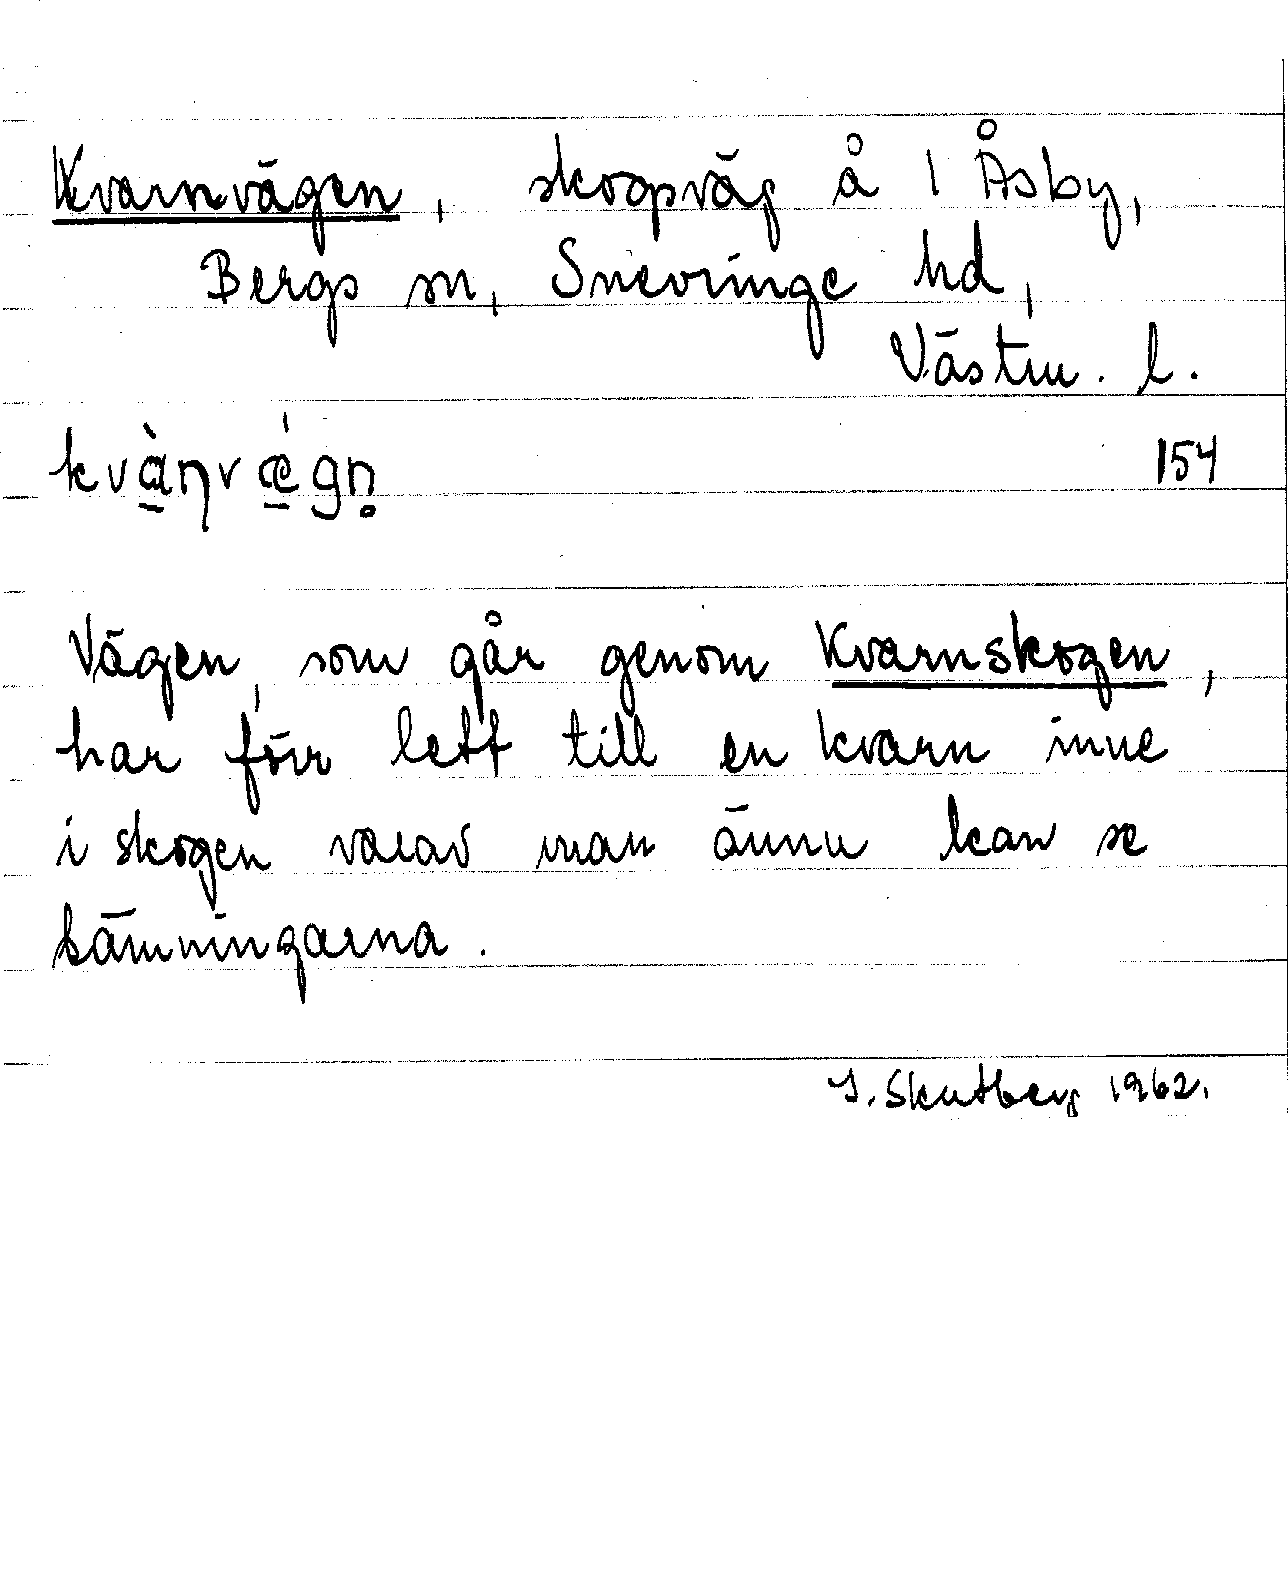 Kvarnvägen, skogsväg å 1 Åsby,
Bergs sn, Snevringe hd,
Västm. l.
kvà̱ŋvǽ̱gn̥ 154
Vägen, som går genom Kvarnskogen,
har förr lett till en kvarn inne
i skogen varav man ännu kan se
lämningarna.
I. Skutberg 1962.